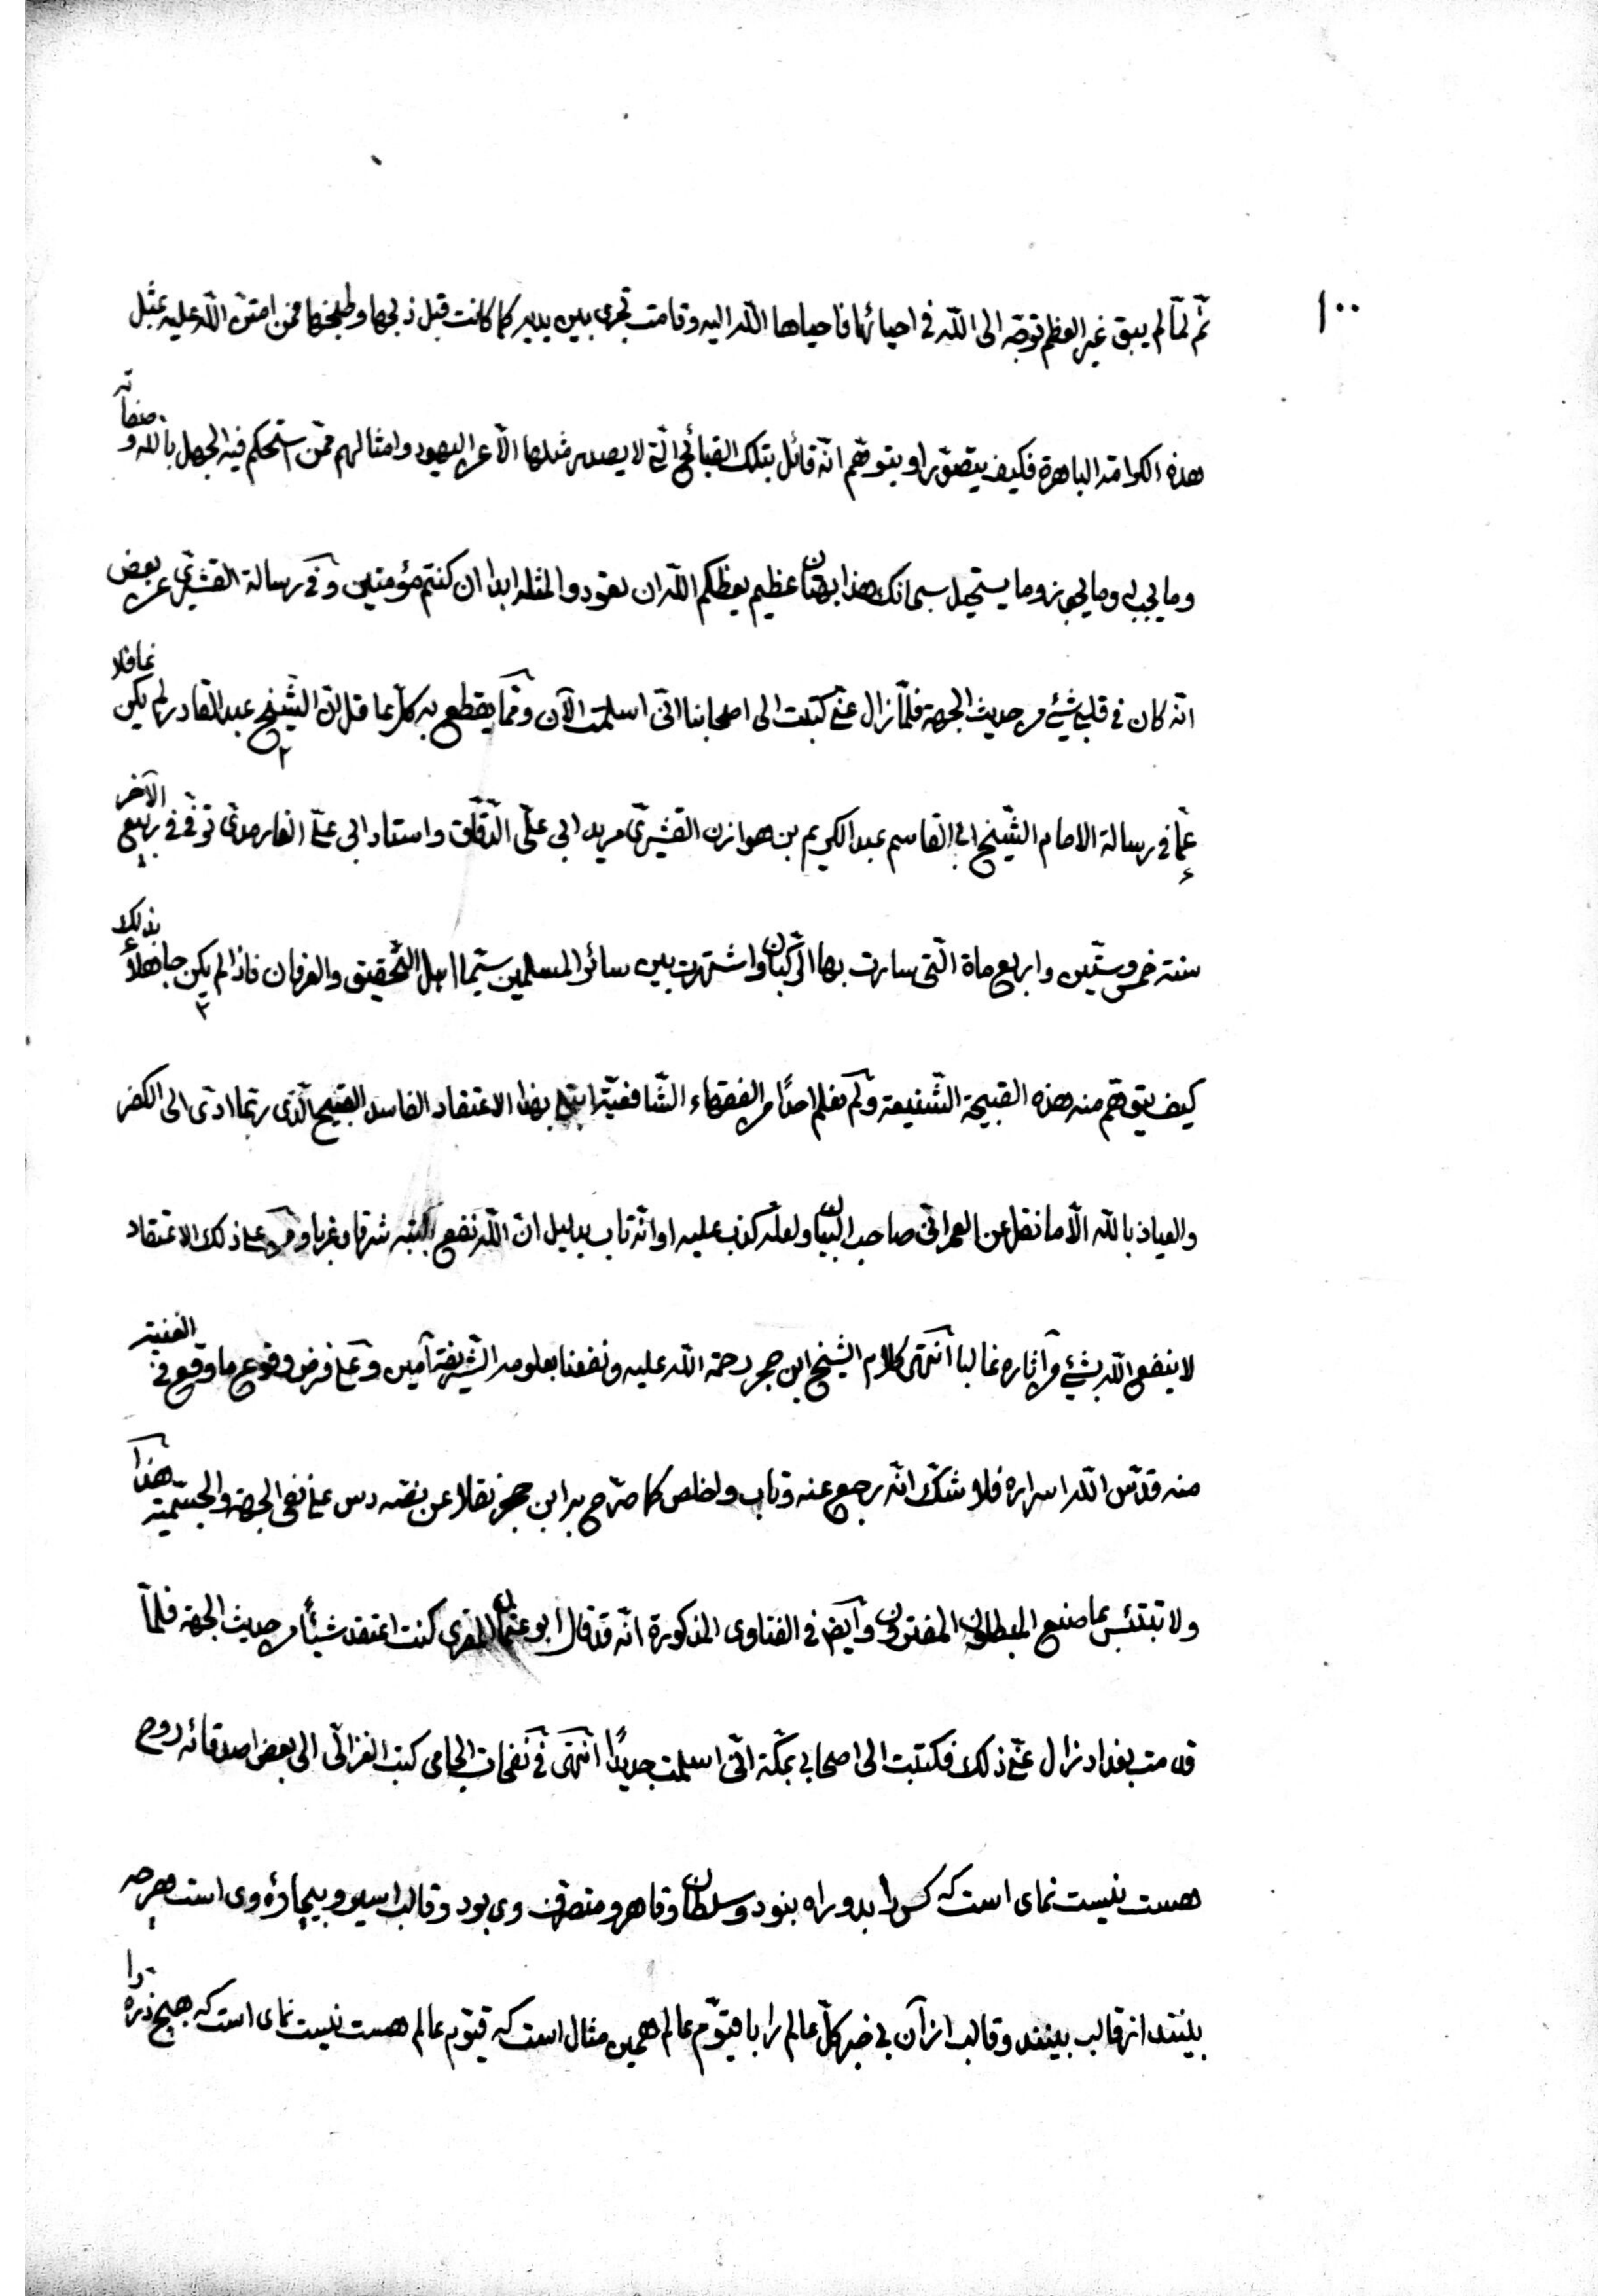 ١٠٠
ثمّ لمّا لم يبق غير العظم توجّه الى اللّه فى احيائها فاحياها اللّه اليه وقامت تجرى بين يديه كما كانت قبل ذبحها وطبخها فمن امتنّ اللّه عليه بمثل
هذه الكرامة الباهرة فكيف يتصوّر او يتوهّم انّه قائل بتلك القبائح الّتى لا يصدر مثلها الّا عن اليهود وامثالهم ممّن استحكم فيه الجهل باللّه وصفاته
وما يجب له وما يجوز وما يستحيل سبحانك هذا بهتان عظيم يعظكم اللّه ان تعودوا لمثله ابدا ان كنتم مؤمنين وفى رسالة القشيرى عن بعض
انّه كان فى قلبى شيئ من حديث الجهة فلمّا زال عنّى كتبت الى اصحابنا انّى اسلمت الآن وممّا يقطع به كلّ عاقل انّ الشّيخ عبد القادر لم يكن غافلا
عمّا فى رسالة الامام الشّيخ ابى القاسم عبد الكريم بن هوازن القشيرىّ مريد ابى علىّ الدّقّاق واستاد ابى علىّ الفارمدى توفّى فى ربيع الآخر
سنة خمس وستّين واربع ماة الّتى سارت بها الرّكبان واشتهرت بين سائر المسلمين سيّما اهل التّحقيق والعرفان فاذا لم يكن جاهلا بذلك
كيف يتوهّم منه هذه القبيحة الشّنيعة ولم نعلم احدًا من الفقهاء الشّافعيّة ابتلى بهذا الاعتقاد الفاسد القبيح الّذى ربّما ادّى الى الكفر
والعياذ باللّه الّا ما نقل عن العمرانّى صاحب البيان ولعلّه كذب عليه او انّه تاب بدليل انّ اللّه نفع بكتبه شرقا وغربا ومن على ذلك الاعتقاد
لا ينفع اللّه بشيئ من آثاره غالبا انتهى كلام الشيخ ابن حجر رحمة اللّه عليه ونفعنا بعلومه الشّريفة آمين وعلى فرض وقوع ما وقع فى الغنية
منه قدّس اللّه اسراره فلا شكّ انّه رجع عنه وتاب واخلص كما صرّح به ابن حجر نقلا عن نصّه دس على نفى الجهة والجسّميّة هذا
ولا تبتئس بما صنع المبطلون المفترون وايضا فى الفتاوى المذكورة انّه قد قال ابو عثمان المغربى كنت اعتقد شيئًا من حديث الجهة فلمّا
قدمت بغداد زال عنّى ذلك فكتبت الى اصحابى بمكّة انّى اسلمت جديدًا انتهى فى نفحات الجامى كتب الغزالّى الى بعض اصدقائه روح
هست نيست نماى است كه كس را بدو راه بنود وسلطان وقاهر ومتصرّف وى بود وقالب اسير وبيچارۀ وى است هرچه
بينند از قالب بينند وقالب از آن بى خبر كلّ عالم را با قيّوم عالم همين مثال است كه قيّوم عالم هست نيست نماى است كه هيچ ذرّه را